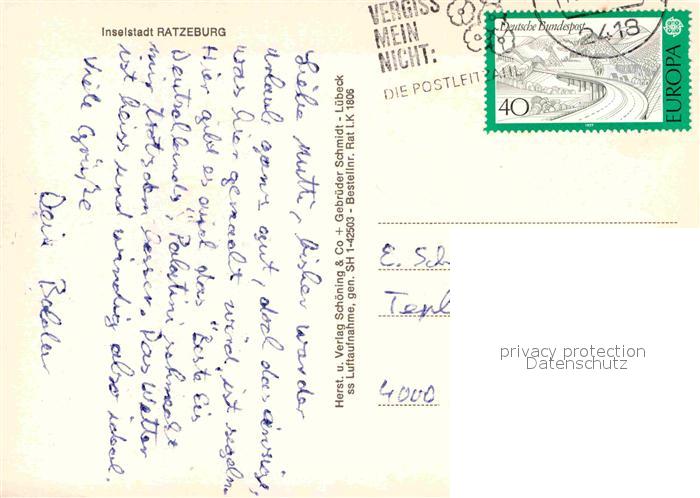 Inselstadt RATZEBURG
Liebe Mutti, bisher war der
Urlaub ganz gut, doch das einzige,
was hier gemacht wird, ist segeln.
Hier gibt es und das "Beste Eis
Deutschlands", schmeckt
mir trotzdem besser. Das Wetter
ist heiss und windig also ideal.
Viele Grüße
Dein
Herst. u. Verlag Schöning & Co + Gebrüder Schmidt - Lübeck
ss Luftaufnahme, gen. SH 1-42503 - Bestellnr. Rat LK 1806
VERGISS
MEIN
NICHT:
DIE POSTLEITZAHL
2418
Deutsche Bundespost
40
EUROPA
1977
E. Sch
Tepl
4000
privacy protection
Datenschutz